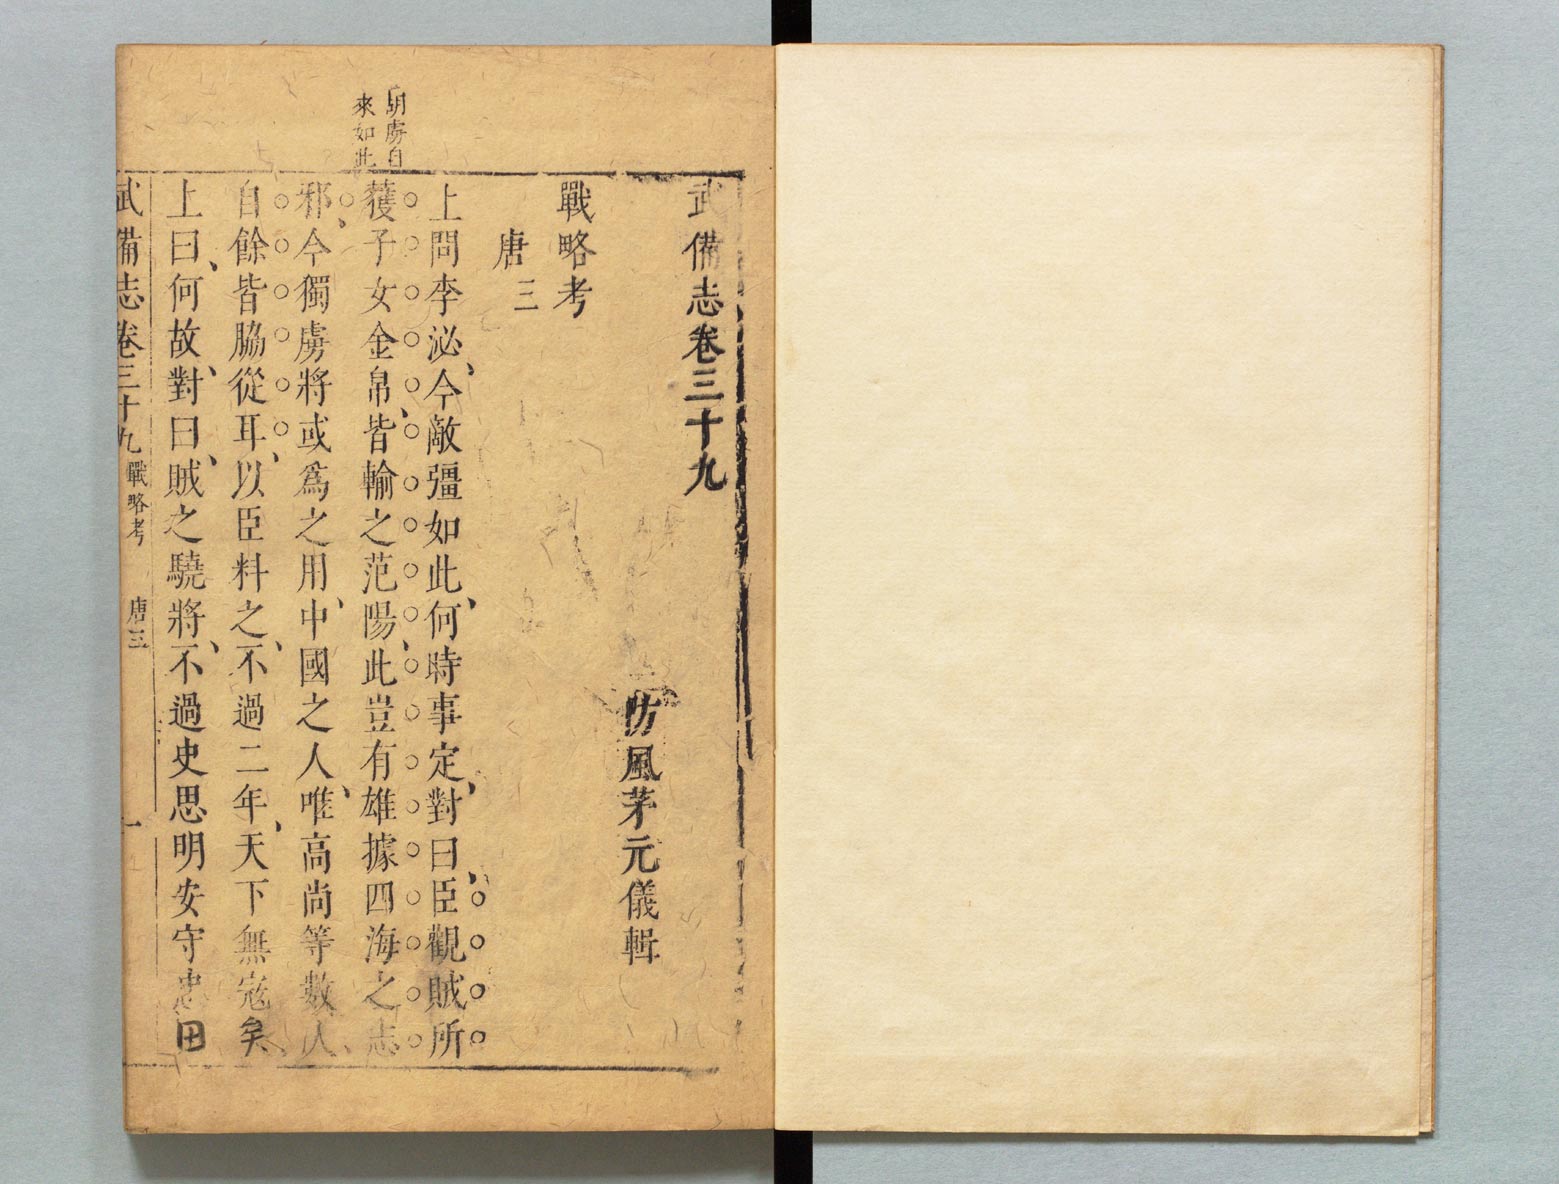 武備志卷三十九
防風茅元儀輯
戰略考
唐三
上問李泌、今敵彊如此、何時事定、對曰、臣觀賊所
獲子女金帛、皆輸之范陽、此豈有雄據四海之志
邪、今獨虜將或爲之用、中國之人、唯高尚等數人、
自餘皆脇從耳、以臣料之、不過二年、天下無寇矣、
上曰、何故、對曰、賊之驍將、不過史思明安守忠田
胡虜自
來如此
武備志卷三十九 戰略考 唐三 一